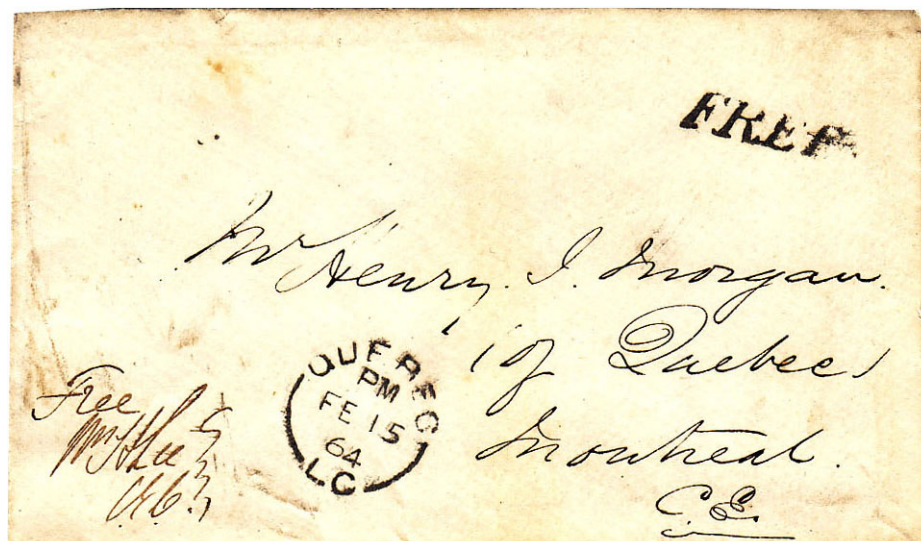 FREE
Mr Henry. J. Morgan.
(of Quebec)
Montreal.
C.E.
QUEBEC
PM
FE 15
64
L.C
Free
Wm H Lee